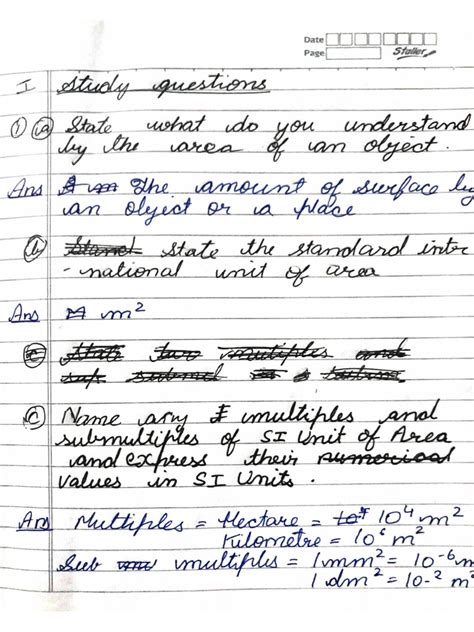 Date
Page
Staller
I Study questions
① (a) State what do you understand
by the area of an object.
Ans The amount of surface by
an object or a place
(b) State the standard inter
-national unit of area
Ans m²
(c) Name any multiples and
submultiples of SI Unit of Area
and express their
values in SI Units.
Ans Multiples = Hectare = 10⁴ m²
Kilometre = 10⁶ m²
Sub multiples = 1 mm² = 10⁻⁶ m
1 dm² = 10⁻² m²